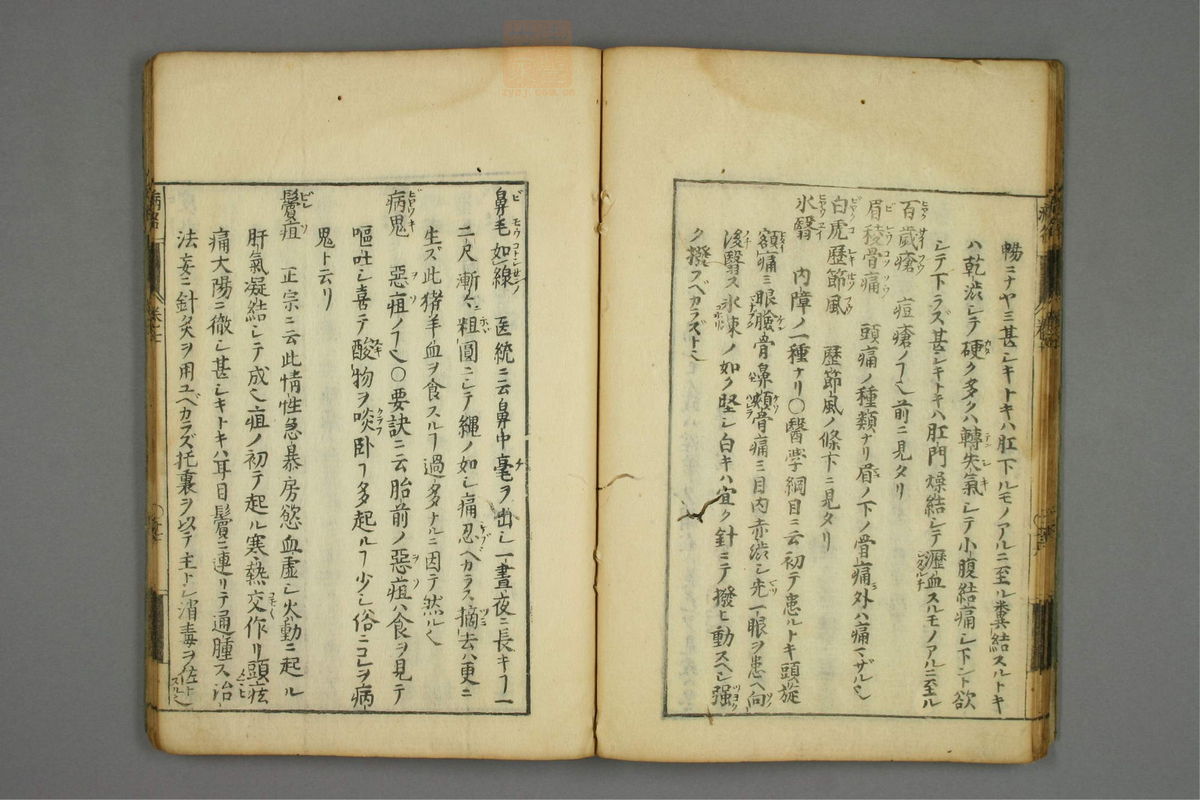 暢ニナヤミ甚シキトキハ肛下ルモノアルニ至ル糞結スルトキ
ハ乾渋シテ硬ク多クハ轉失氣シテ小腹結痛シ下ント欲
シテ下ラズ甚シキトキハ肛門燥結シテ瀝血スルモノアルニ至ル
百歲瘡 痘瘡ノ𠃋前ニ見タリ
眉稜骨痛 頭痛ノ種類ナリ眉ノ下ノ骨痛外ハ痛マザル也
白虎歷節風 歷節風ノ條下ニ見タリ
氷瞖 內障ノ一種ナリ〇醫學綱目ニ云初テ患ルトキ頭旋
額痛ミ眼瞼骨鼻頰骨痛ミ目內赤渋シ先一眼ヲ患ヘ向
後瞖ス氷凍ノ如ク堅シ白キハ宜ク針ニテ撥ヒ動スヘシ强
ク撥フベカラズト也
鼻毛如線 医統ニ云鼻中毫ヲ出シ一晝夜ニ長キヿ一
二尺漸々粗圓ニシテ縄ノ如シ痛忍ヘカラス摘去ハ更ニ
生ズ此猪羊血ヲ食スルヿ過多ナルニ因テ然ル也
病鬼 惡疽ノ𠃋〇要訣ニ云胎前ノ惡疽ハ食ヲ見テ
嘔吐シ喜テ酸物ヲ啖卧ヿ多起ルヿ少シ俗ニコレヲ病
鬼ト云リ
鬢疽 正宗ニ云此情性急暴房慾血虛シ火動ニ起ル
肝氣凝結シテ成也疽ノ初テ起ル寒熱交作リ頭眩
痛大陽ニ徹シ甚シキトキハ耳目鬢ニ連リテ通腫ス治
法妄ニ針灸ヲ用ユベカラズ托裏ヲ以テ主トシ消毒ヲ佐トスル也